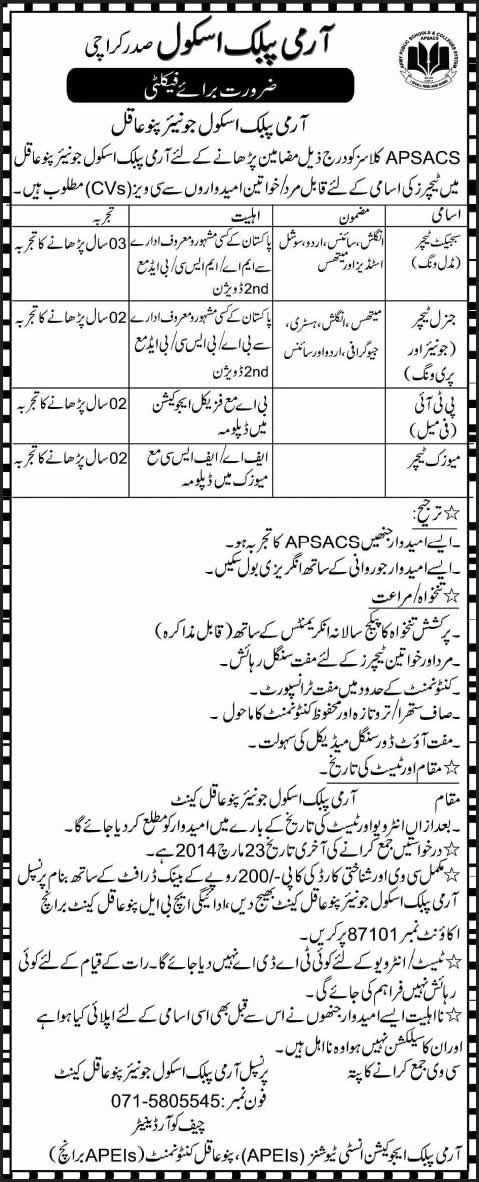 آرمی پبلک اسکول صدر کراچی
ضرورت برائے فیکلٹی
آرمی پبلک اسکول جونیئر پنوعاقل
APSACS کلاسز کو درج ذیل مضامین پڑھانے کے لئے آرمی پبلک اسکول جونیئر پنوعاقل
میں ٹیچرز کی اسامی کے لئے قابل مرد/خواتین امیدواروں سے سی ویز (CVs) مطلوب ہیں۔
اسامی مضمون اہلیت تجربہ
سبجیکٹ ٹیچر انگلش، سائنس، اردو، سوشل پاکستان کے کسی مشہور و معروف ادارے 03 سال پڑھانے کا تجربہ
(مڈل ونگ) اسٹڈیز اور میتھس سے ایم اے/ایم ایس سی/بی ایڈ مع
2nd ڈویژن
جنرل ٹیچر میتھس، انگلش، ہسٹری، پاکستان کے کسی مشہور و معروف ادارے 02 سال پڑھانے کا تجربہ
(جونیئر اور جیوگرافی، اردو اور سائنس سے بی اے/بی ایس سی/بی ایڈ مع
پری ونگ) 2nd ڈویژن
پی ٹی آئی بی اے مع فزیکل ایجوکیشن 02 سال پڑھانے کا تجربہ
(فی میل) میں ڈپلومہ
میوزک ٹیچر ایف اے/ایف ایس سی مع 02 سال پڑھانے کا تجربہ
میوزک میں ڈپلومہ
☆ ترجیح:
۔ ایسے امیدوار جنھیں APSACS کا تجربہ ہو۔
۔ ایسے امیدوار جو روانی کے ساتھ انگریزی بول سکیں۔
☆ تنخواہ/مراعت
۔ پرکشش تنخواہ کا پیکج سالانہ انکریمنٹس کے ساتھ (قابل مذاکرہ)
۔ مرد اور خواتین ٹیچرز کے لئے مفت سنگل رہائش۔
۔ کنٹونمنٹ کے حدود میں مفت ٹرانسپورٹ۔
۔ صاف ستھرا/تروتازہ اور محفوظ کنٹونمنٹ کا ماحول۔
۔ مفت آؤٹ ڈور سنگل میڈیکل کی سہولت۔
☆ مقام اور ٹیسٹ کی تاریخ۔
مقام آرمی پبلک اسکول جونیئر پنوعاقل کینٹ
۔ بعد ازاں انٹرویو اور ٹیسٹ کی تاریخ کے بارے میں امیدوار کو مطلع کردیا جائے گا۔
☆ درخواستیں جمع کرانے کی آخری تاریخ 23 مارچ 2014 ہے۔
☆ مکمل سی وی اور شناختی کارڈ کی کاپی -/200 روپے کے بینک ڈرافٹ کے ساتھ بنام پرنسپل
آرمی پبلک اسکول جونیئر پنوعاقل کینٹ بھیج دیں، ادائیگی ایچ بی ایل پنوعاقل کینٹ برانچ
اکاؤنٹ نمبر 87101 پر کریں۔
☆ ٹیسٹ/انٹرویو کے لئے کوئی ٹی اے ڈی اے نہیں دیا جائے گا۔ رات کے قیام کے لئے کوئی
رہائش نہیں فراہم کی جائے گی۔
☆ نااہلیت ایسے امیدوار جنھوں نے اس سے قبل بھی اسی اسامی کے لئے اپلائی کیا ہوا ہے
اور ان کا سیلکشن نہیں ہوا وہ نااہل ہیں۔
سی وی جمع کرانے کا پتہ پرنسپل آرمی پبلک اسکول جونیئر پنوعاقل کینٹ
فون نمبر: 071-5805545
چیف کوآرڈینیٹر
آرمی پبلک ایجوکیشن انسٹی ٹیوشنز (APEIs)، پنوعاقل کنٹونمنٹ (APEIs برانچ)